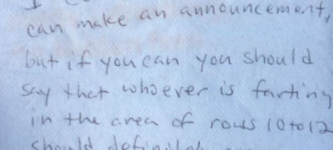 can make an announcement,
but if you can you should
say that whoever is farting
in the area of rows 10 to 12
should definitely